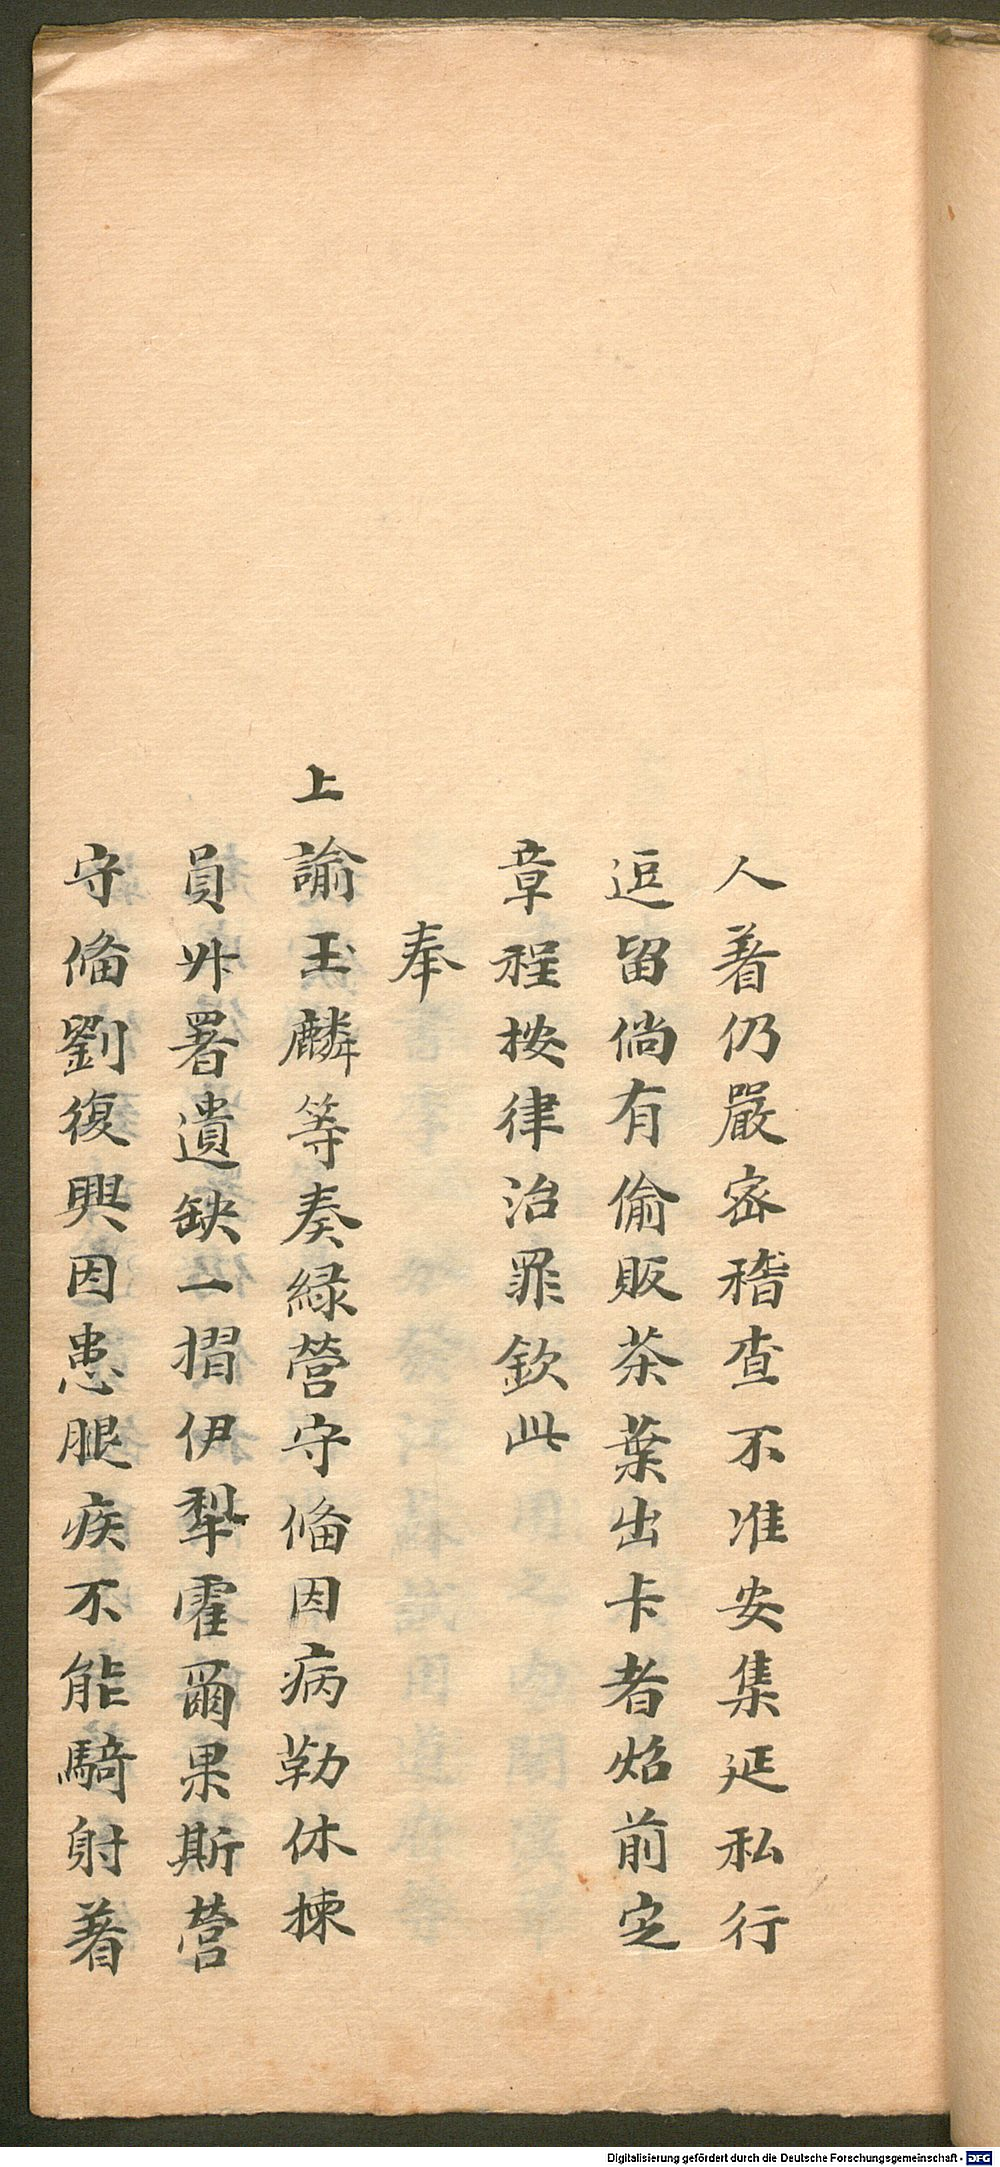 人着仍嚴宻稽查不准安集延私行
逗留倘有偷販茶葉出卡者炤前定
章程按律治罪欽此
奉
上諭玉麟等奏緑營守俻因病勒休揀
員升署遺缺一摺伊犁霍爾果斯營
守俻劉復興因患腿疾不能騎射著
Digitalisierung gefördert durch die Deutsche Forschungsgemeinschaft - DFG